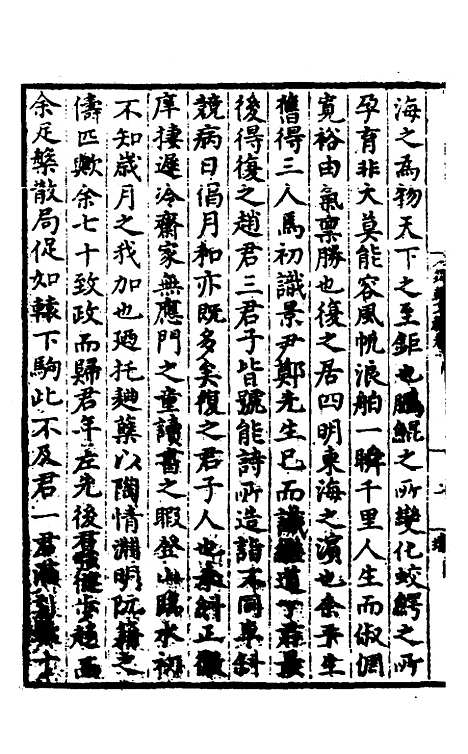 海之為物天下之至鉅也鵬鯤之所變化蛟鰐之所
孕育非大莫能容風帆浪舶一瞬千里人生而俶
寬裕由氣稟勝也復之居四明東海之濱也余平生
舊得三人焉初識景尹鄭先生已而識道丁君最
後得復之趙君三君子皆號能詩所造詣不同車斜
競病日倡月和亦既多矣復之君子人也斜正
庠棲遲冷齋家無應門之童讀書之暇登山臨水初
不知歲月之我加也廼托麯蘖以陶情淵明阮籍之
儔匹歟余七十致政而歸君年差先後健步
余足槃散局促如轅下駒此不及君一君十